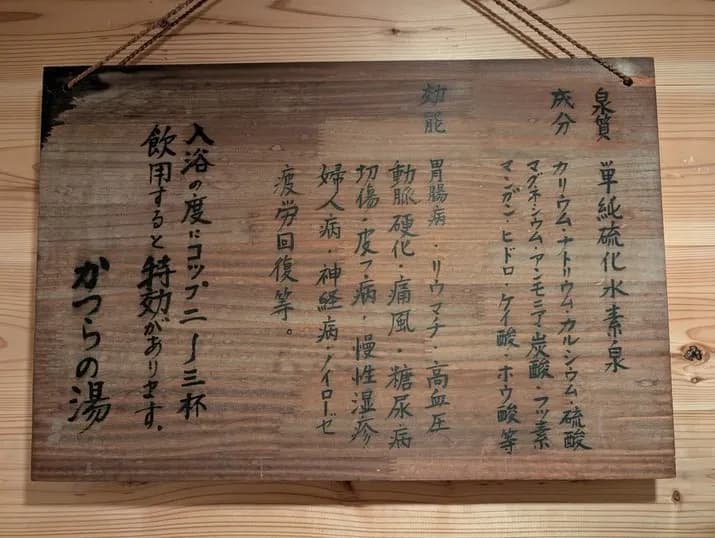 泉質 単純硫化水素泉
成分 カリウム・ナトリウム・カルシウム・硫酸
マグネシウム・アンモニア・炭酸・フッ素
マンガン・ヒドロ・ケイ酸・ホウ酸等
効能 胃腸病・リウマチ・高血圧
動脈硬化・痛風・糖尿病
切傷・皮フ病・慢性湿疹
婦人病・神経病・ノイローゼ
疲労回復等。
入浴の度にコップ二〜三杯
飲用すると特効があります.
かつらの湯